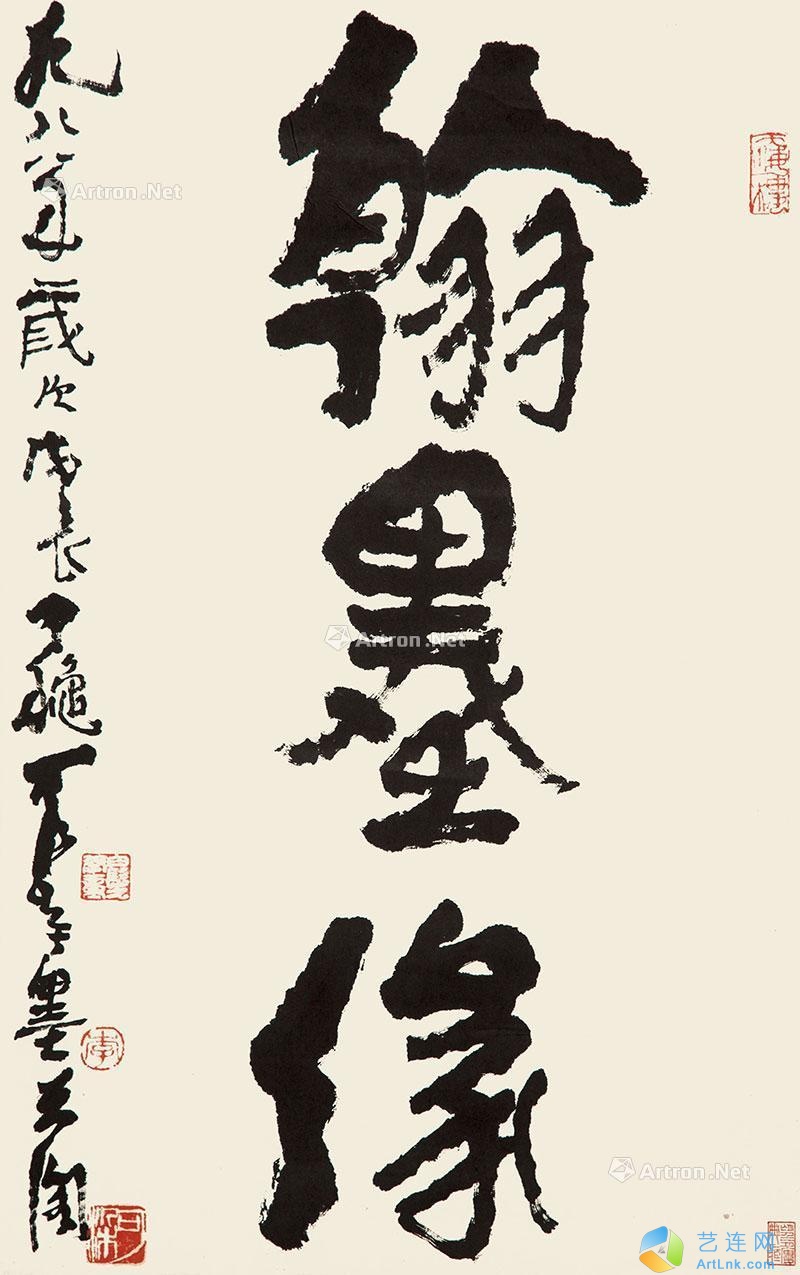 翰墨缘
九八八年歲次戊辰 可染 墨天閣
李
可染
Artron.Net
Artron.Net
Artron.Net
艺连网
ArtLnk.com